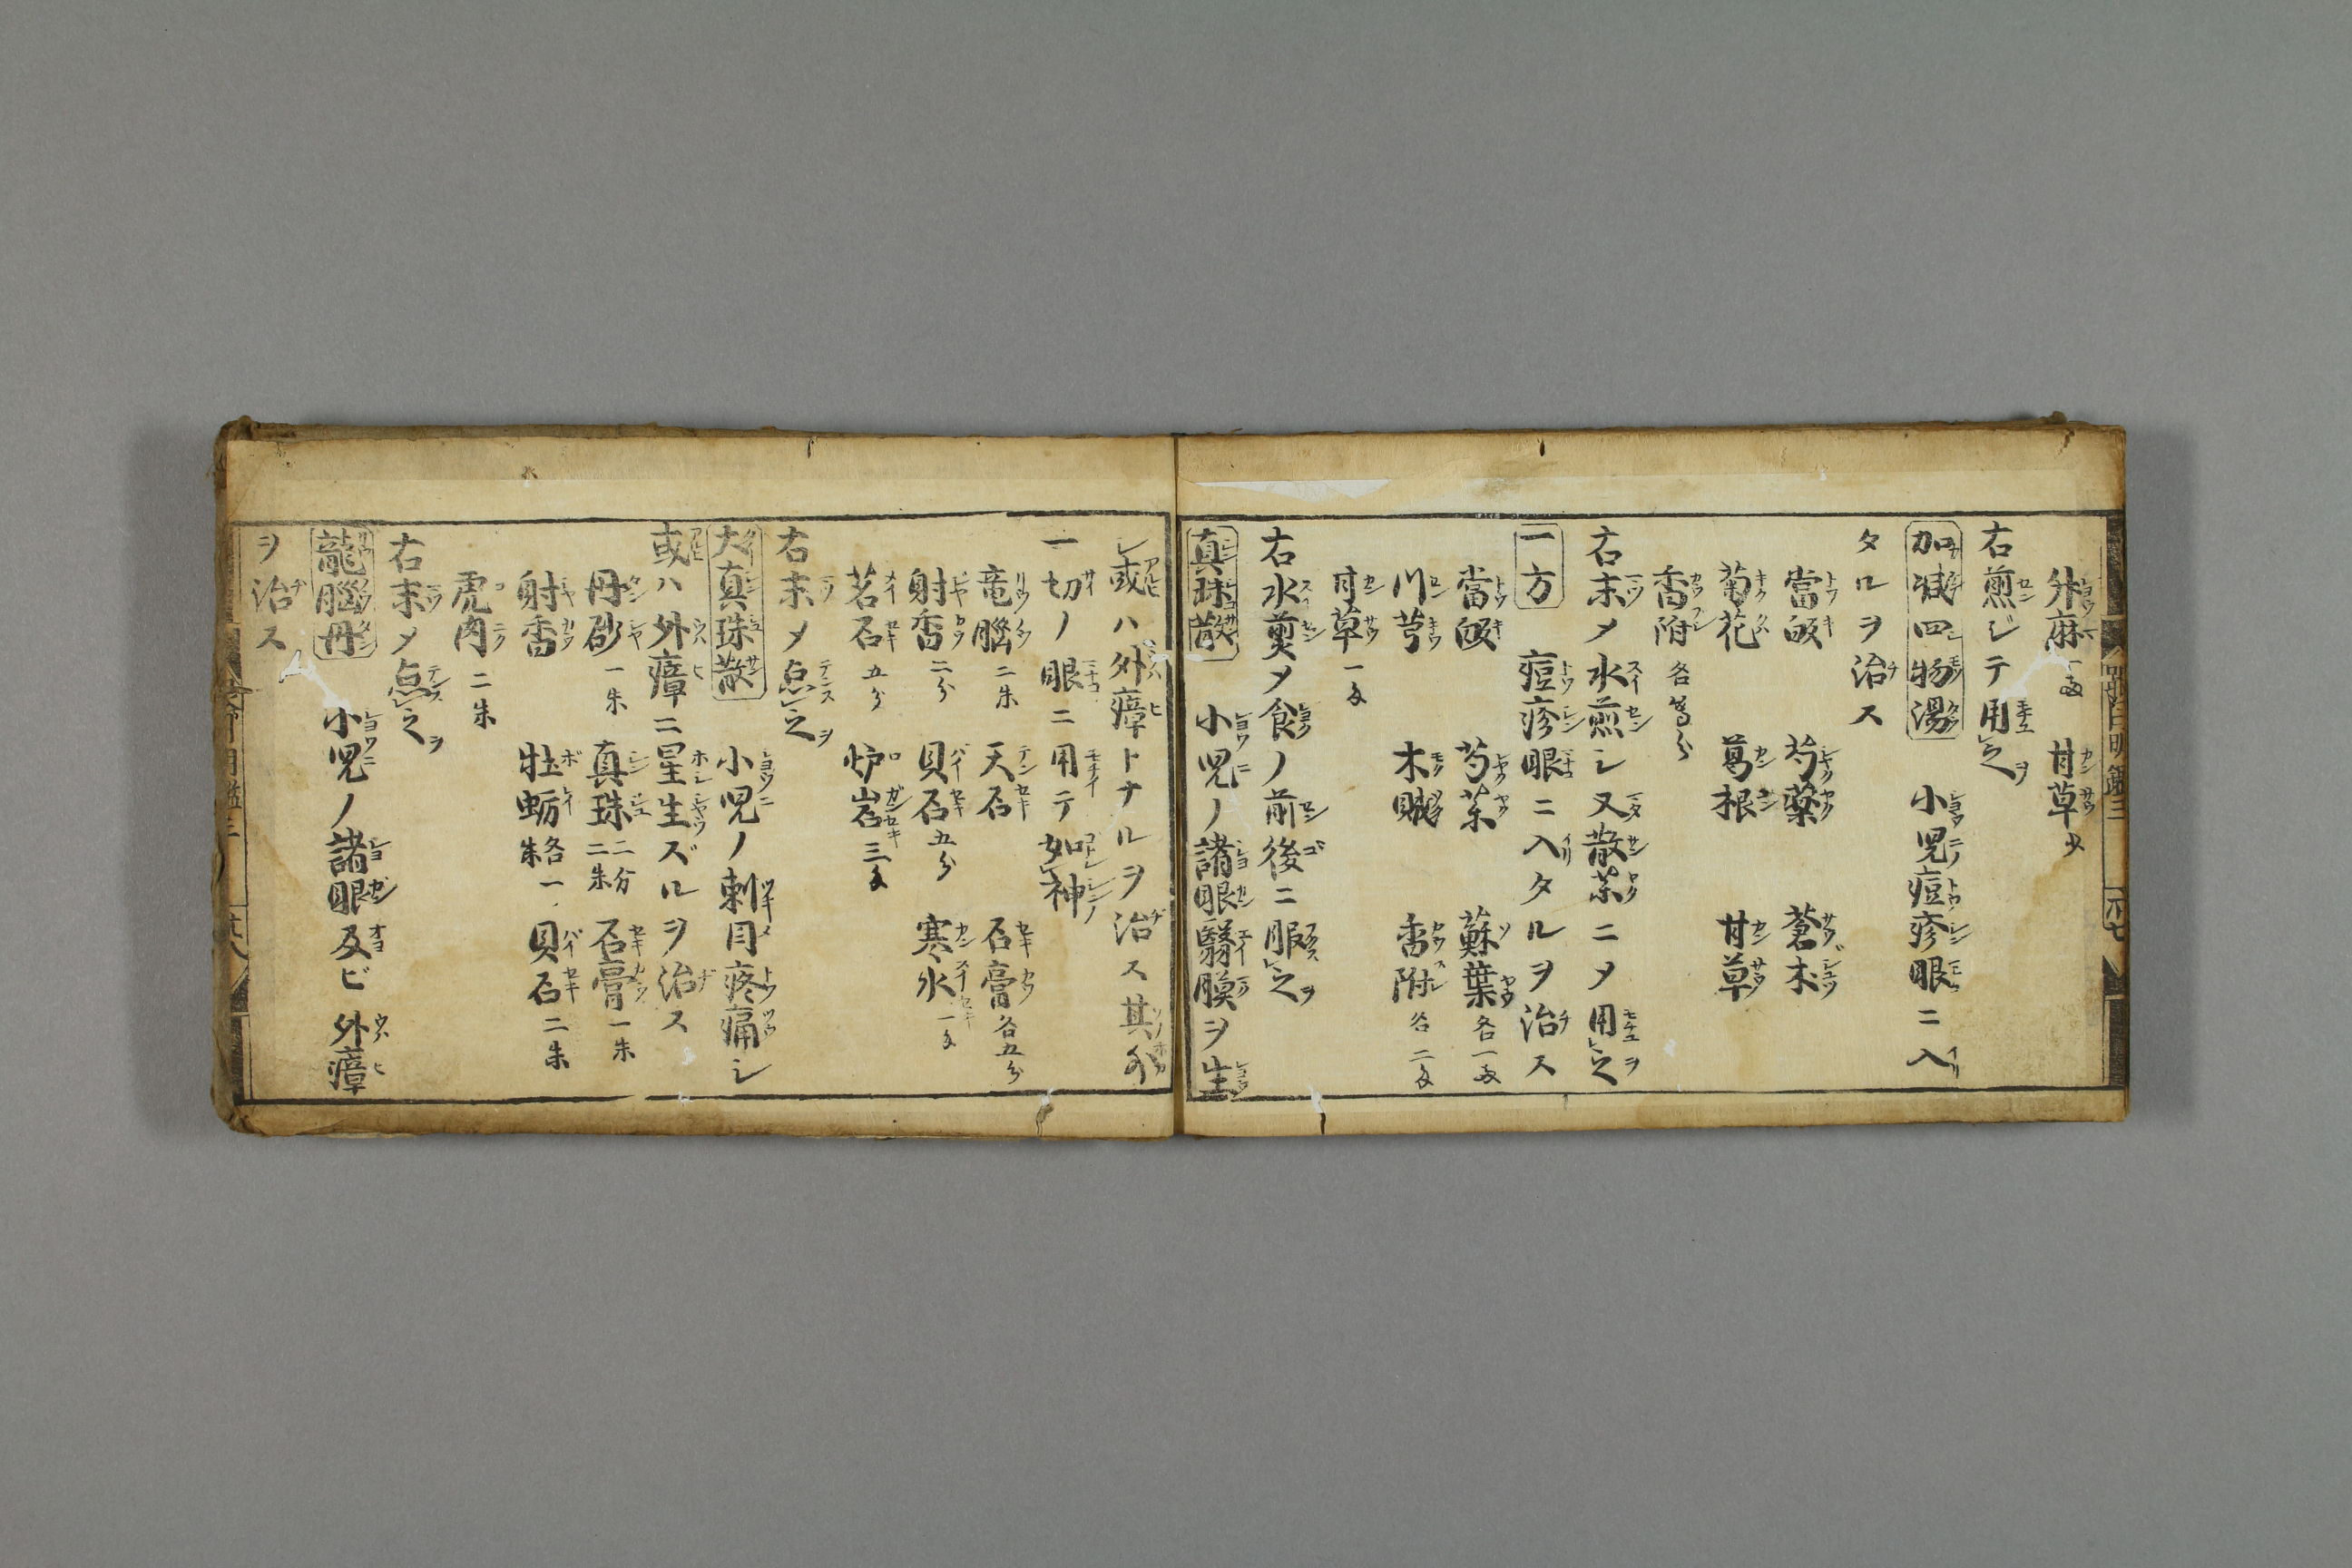 外麻一両 甘草少
右煎ジテ用之ヲ
加減四物湯 小児痘疹眼ニ入
タルヲ治ス
當皈 芍薬 蒼朮
菊花 葛根 甘草
香附各等分
右末メ水煎シ又散薬ニメ用之ヲ
一方 痘疹眼ニ入タルヲ治ス
當皈 芍薬 蘇葉各一両
川芎 木賊 香附各二匁
甘草一匁
右水煎メ食ノ前後ニ服之ヲ
真珠散 小児ノ諸眼翳膜ヲ生
シ或ハ外瘴トナルヲ治ス其外
一切ノ眼ニ用テ如神
竜腦二朱 天石 石膏各五分
射香二分 貝石五分 寒水一匁
茗石五分 炉岩三匁
右末メ点之ヲ
大真珠散 小児ノ刺目疼痛シ
或ハ外瘴ニ星生ズルヲ治ス
丹砂一朱 真珠二分二朱 石膏一朱
射香 牡蛎各一朱 貝石二朱
虎肉二朱
右末メ点之ヲ
龍腦丹 小児ノ諸眼及ビ外瘴
ヲ治ス